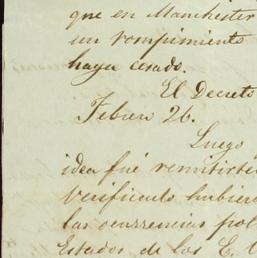 que en Manchester
un rompimiento
haya cesado.
El Decreto
Febrero 26.
Luego
idea fué remitirte
verificado hubiera
las ocurrencias pol
Estados de los E. U